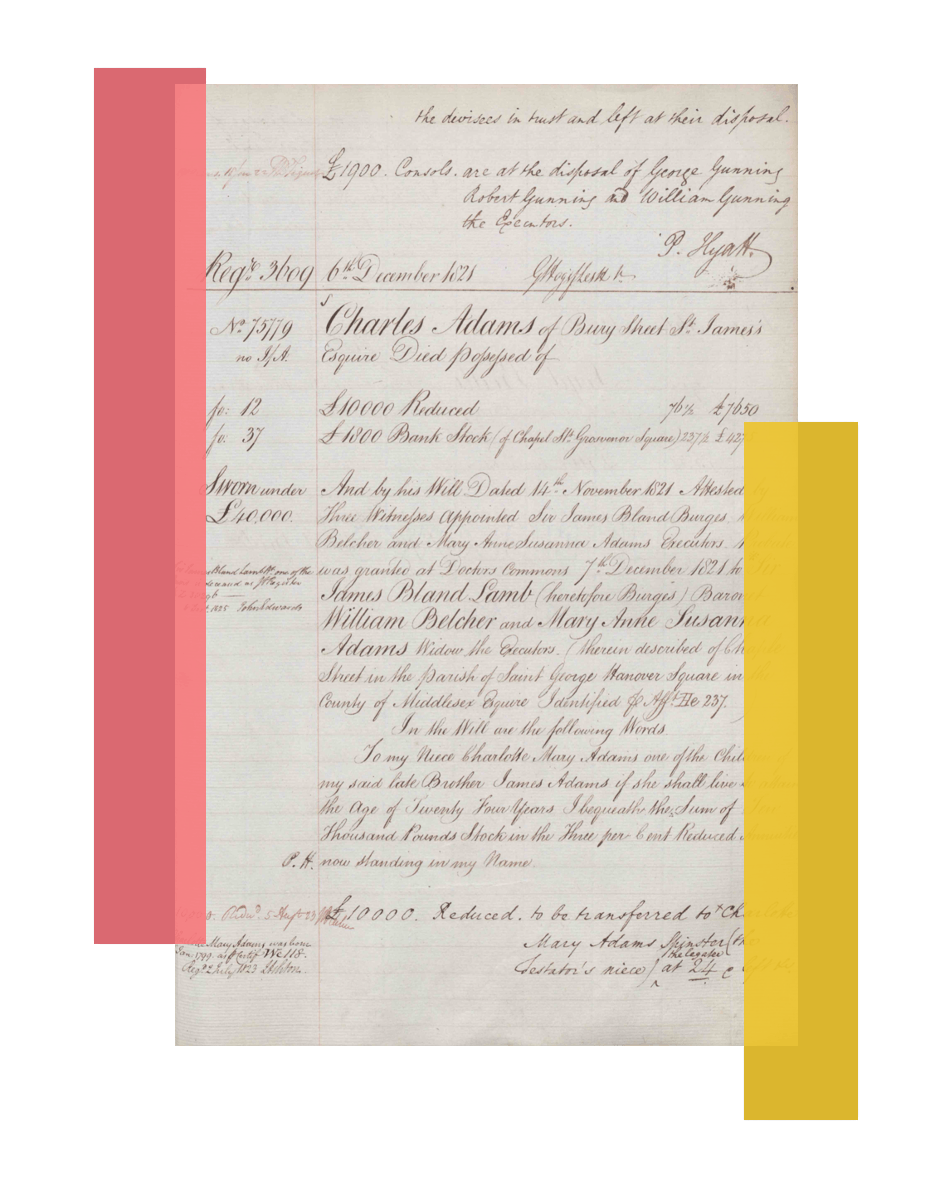 the devisees in trust and left at their disposal.
£1900. Consols. are at the disposal of George Gunning
Robert Gunning and William Gunning
the Executors.
P. Hyatt.
Regd 3609 6th December 1821
No 75779 Charles Adams of Bury Street St. James's
no I/A. Esquire Died possessed of
fo: 12 £10000 Reduced 76½ £7650
fo. 37 £1800 Bank Stock (of Chapel St. Grosvenor Square) 237½ £427
Sworn under And by his Will Dated 14th November 1821 Attested by
£40,000. Three Witnesses Appointed Sir James Bland Burges
Belcher and Mary Anne Susanna Adams Executors.
was granted at Doctors Commons 7th December 1821 to Sir
James Bland Lamb (heretofore Burges) Baronet
William Belcher and Mary Anne Susanna
Adams Widow the Executors. (therein described of
Street in the parish of Saint George Hanover Square in the
County of Middlesex Esquire Identified Afft He 237.
In the Will are the following Words
To my Niece Charlotte Mary Adams one of the Children of
my said late Brother James Adams if she shall live to attain
the Age of Twenty Four Years I bequeath the Sum of Ten
Thousand Pounds Stock in the Three per Cent Reduced
P. H. now standing in my Name.
£10000. Reduced. to be transferred to Charlotte
Mary Adams Spinster (the
the legatee
Testator's niece) at 24
Mary Adams was born
Jan. 1799. Certif We 118.
Regd 2 July 1823